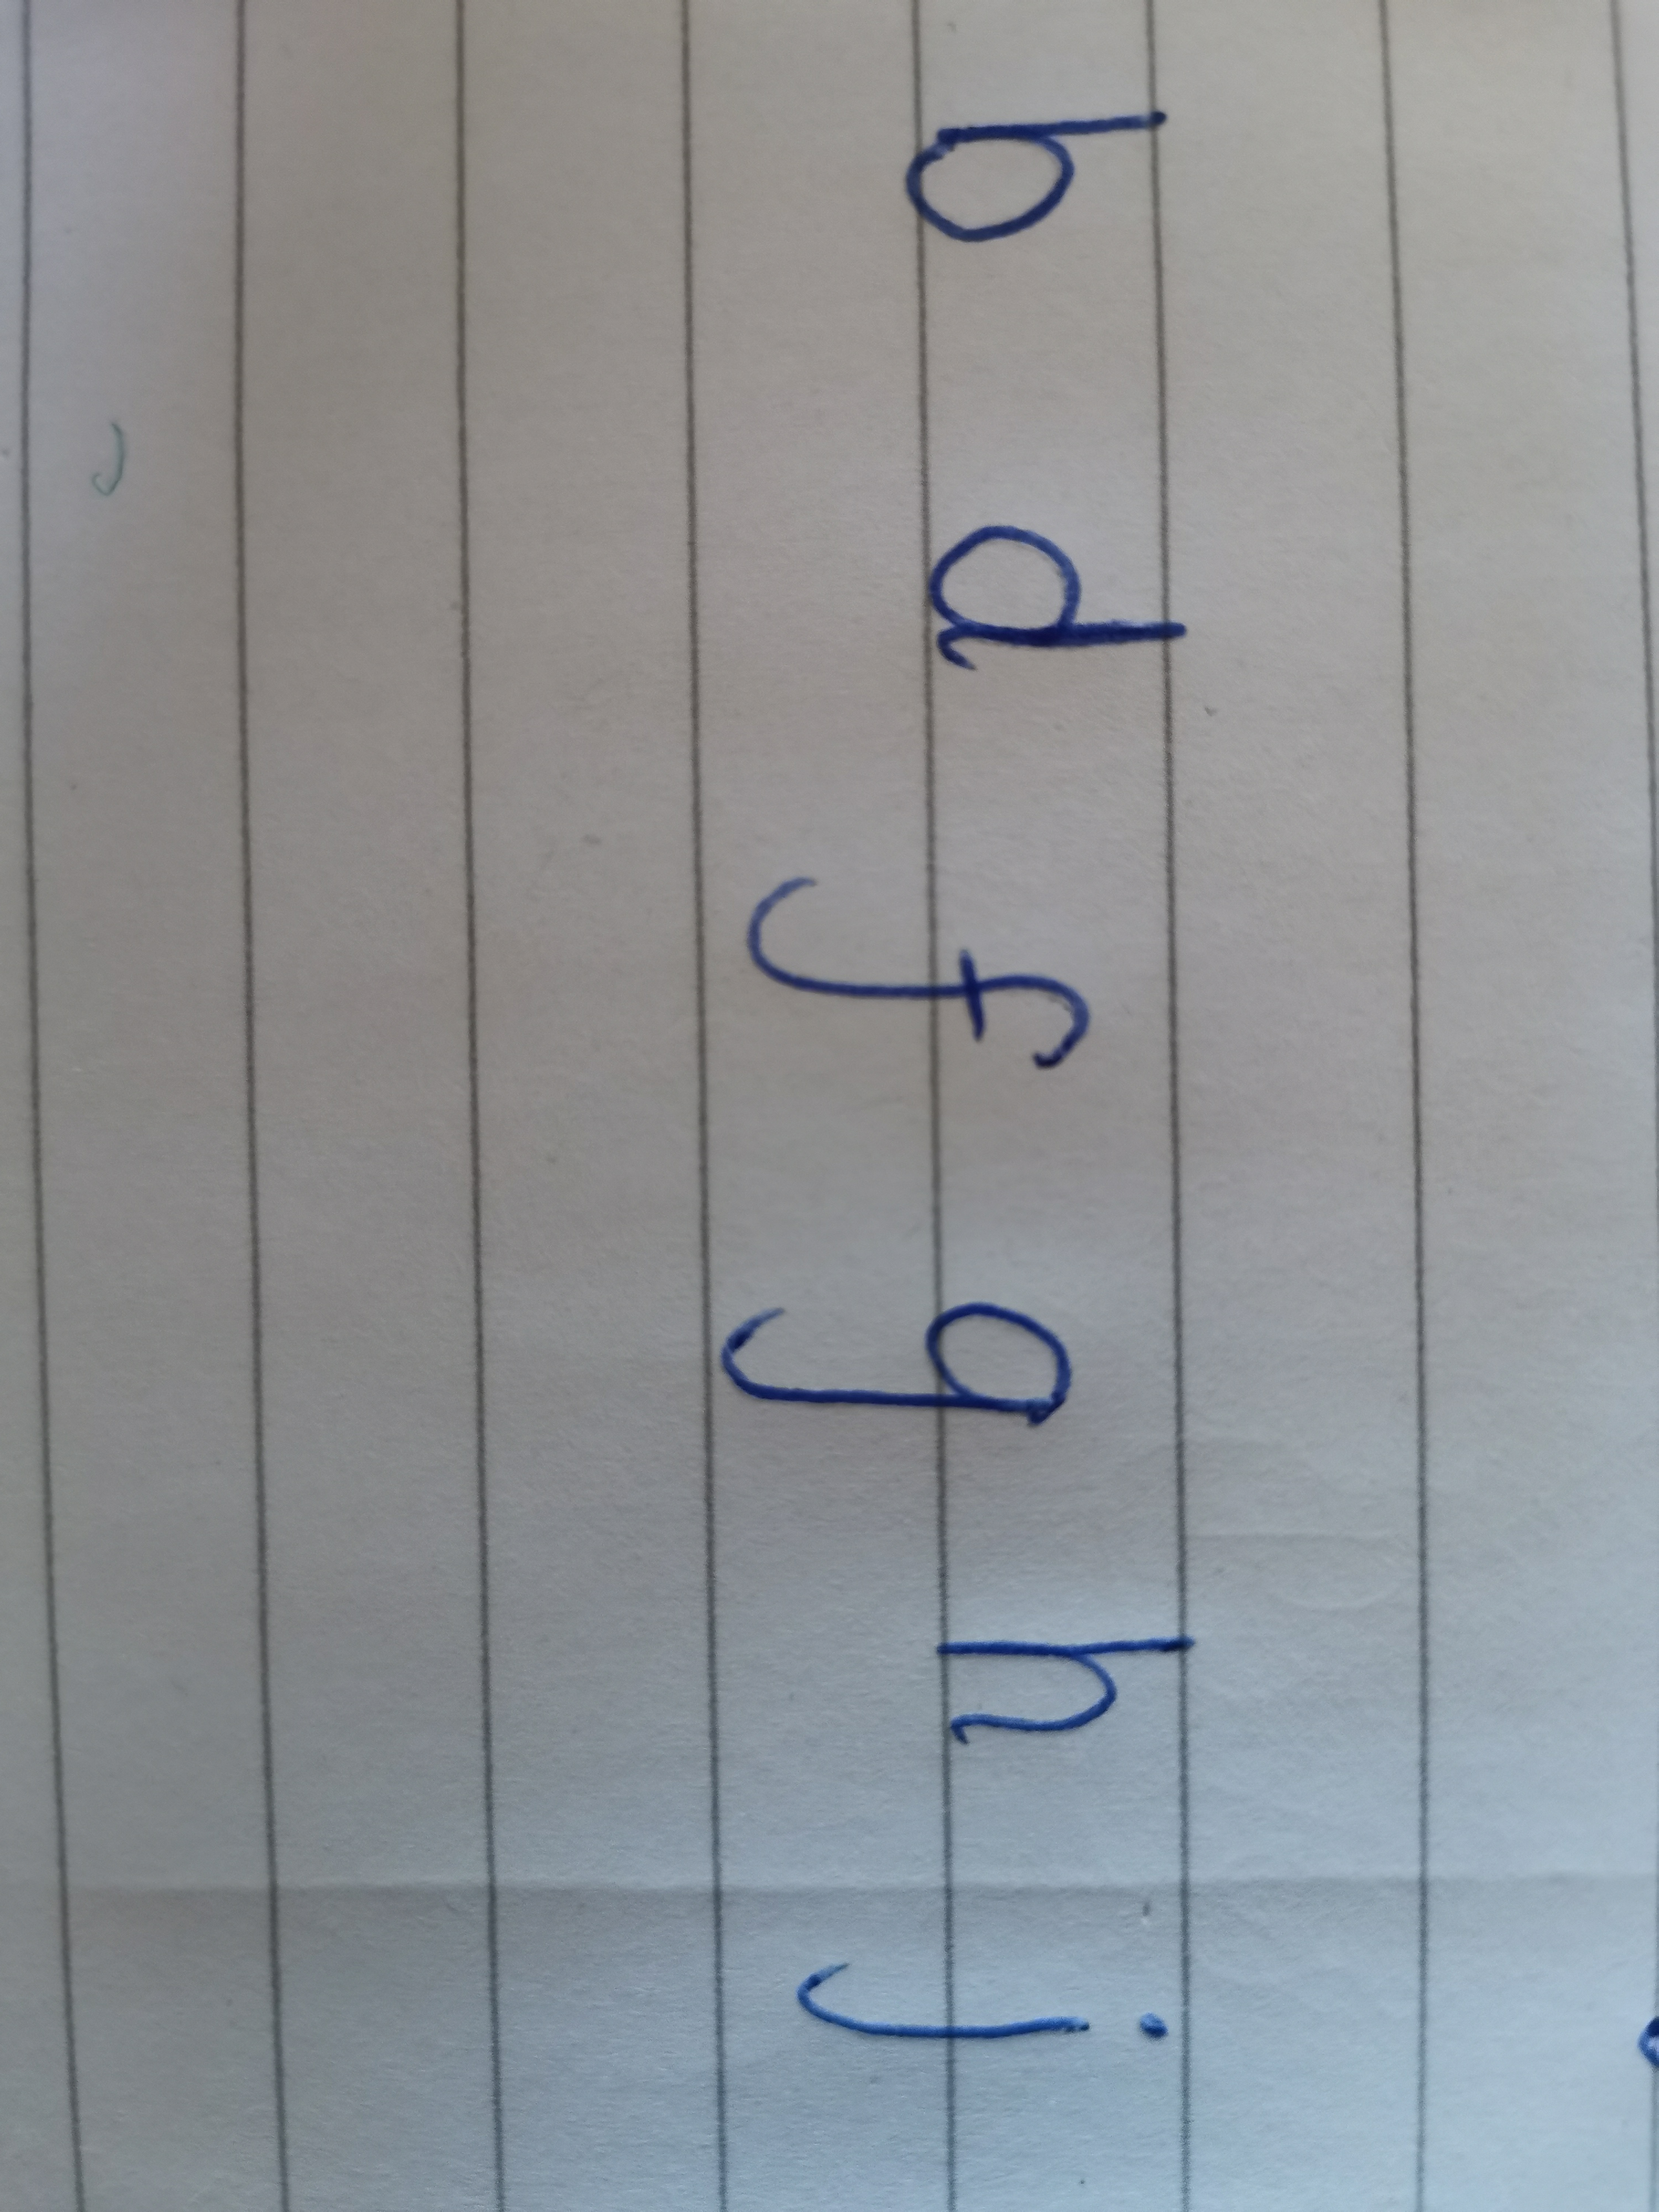 b d f g h j